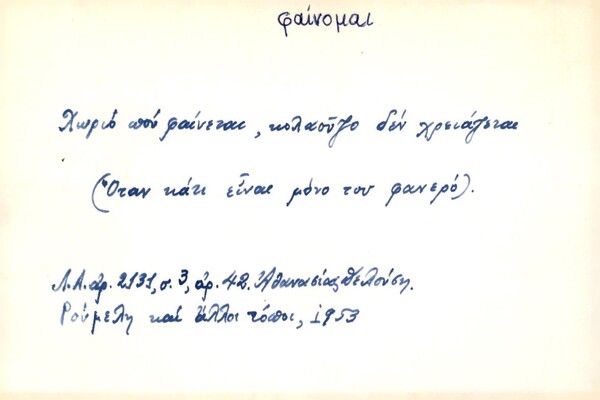 φαίνομαι
Χωριό πού φαίνεται, κολαοῦζο δέν χρειάζεται
(Ὅταν κάτι εἶναι μόνο του φανερό).
Λ.Α. ἀρ. 2131, σ. 3, ἀρ. 42. Ἀθανασίας
Ρούμελη καί ἄλλοι τόποι, 1953